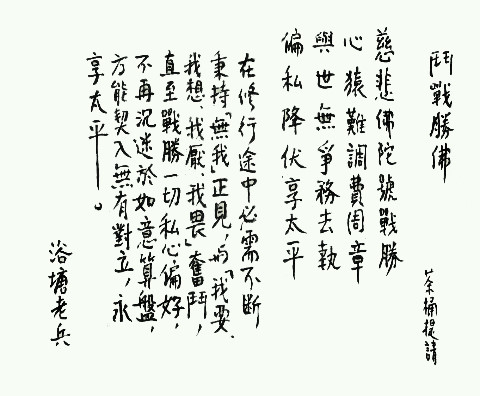 鬥戰勝佛
茶桶提請
慈悲佛陀號戰勝
心猿難調費周章
與世無爭務去執
偏私降伏享太平
在修行途中必需不斷
秉持「無我」正見，與「我要、
我想、我厭、我畏」奮鬥，
直至戰勝一切私心偏好，
不再沉迷於如意算盤，
方能契入無有對立，永
享太平──。
浴塘老兵